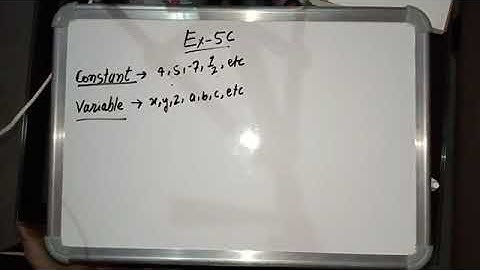 Ex-5C
Constant → 4, 5, -7, 1/2, etc
Variable → x, y, z, a, b, c, etc